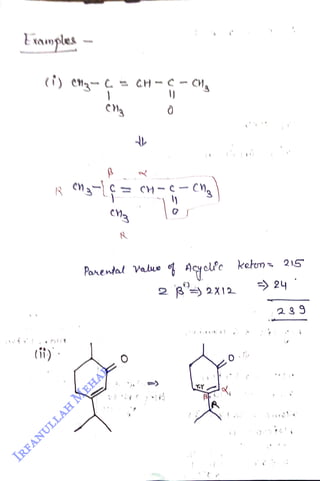 Examples -
(i) CH3 - C = CH - C - CH3
CH3 O
β α
R CH3 - C = CH - C - CH3
CH3 O
R
Parental Value of Acyclic keton = 215
2 β => 2x12 => 24
239
(ii) O => O
α
β
R
IRFANULLAH MEHAR